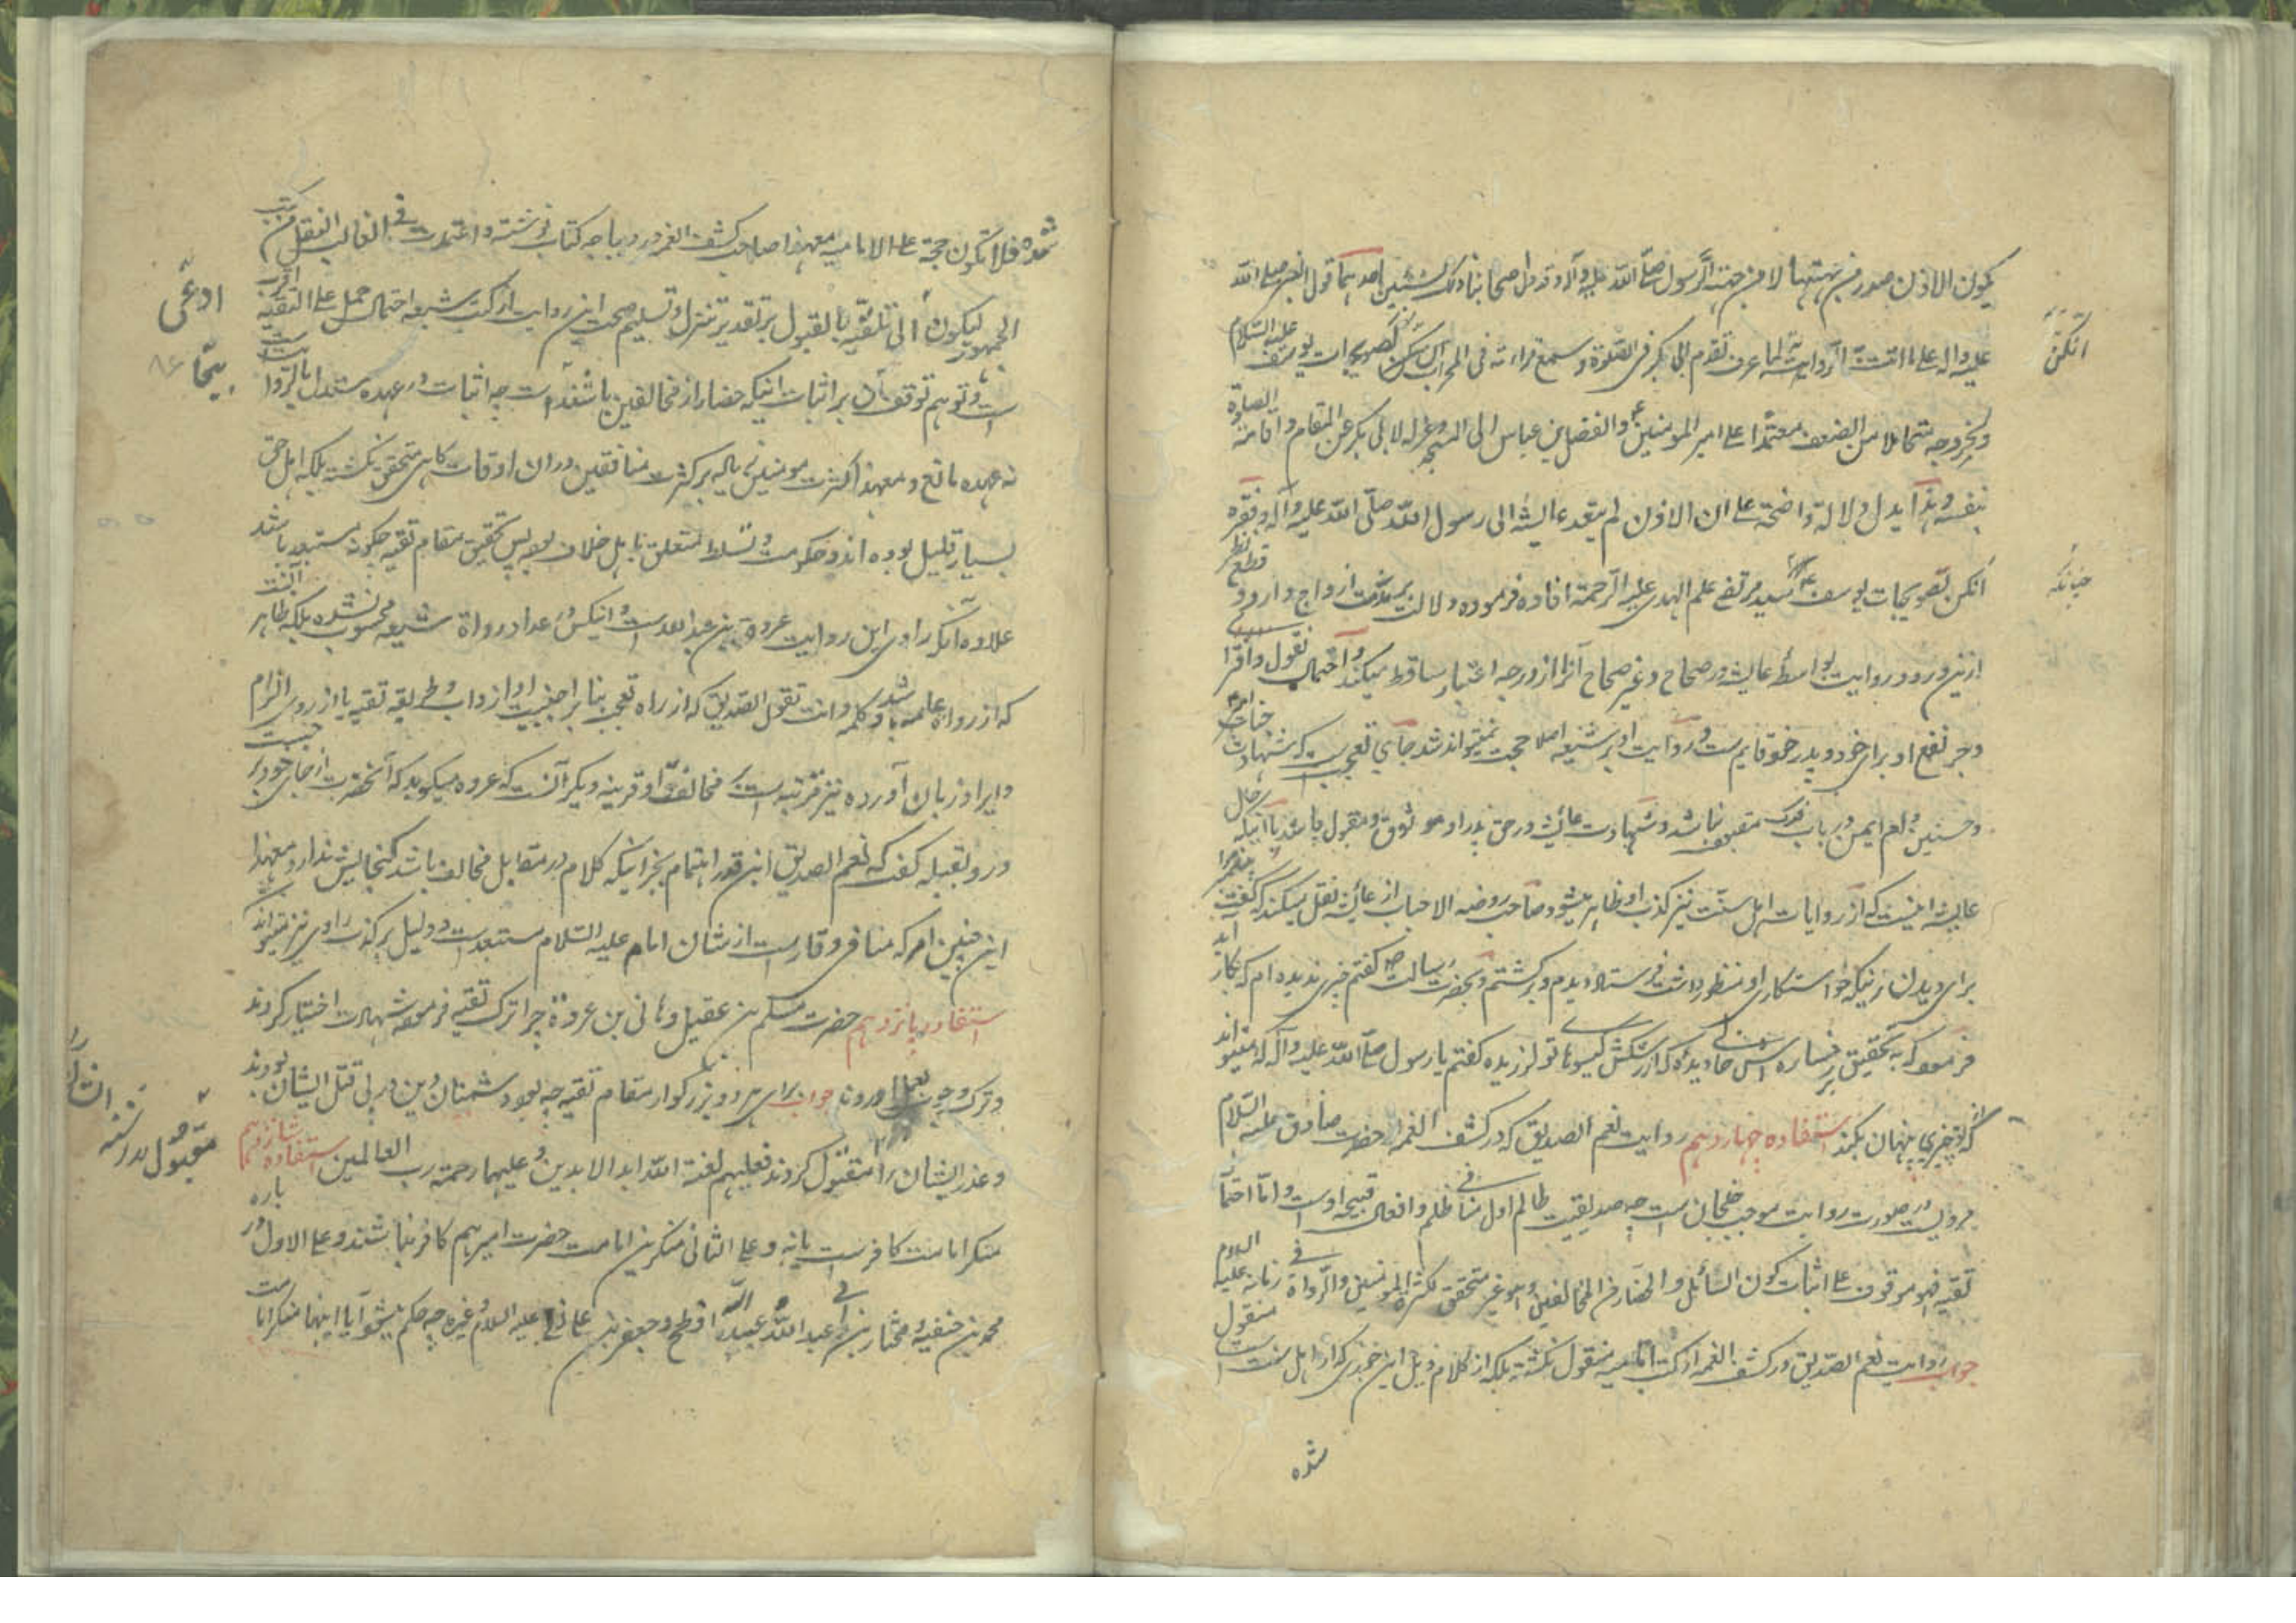 یکون الاذن صدر من جهتها لا من جهة الرسول صلّی اللّه علیه وآله وقد دل اصحابنا ذلک بشیئین احدهما قول النبی صلی اللّه
علیه واله علی ما اتت به الروایة لما عرف تقدم ابی بکر فی الصلوة وسمع قراءته فی المحراب انکن کصویحبات یوسف علیه السّلام
انکنّ
ولخروجه متحاملا من الضعف معتمدا علی امیر المومنین ع والفضل بن عباس الی المسجد وعزله لابی بکر عن المقام واقامة الصلوة
بنفسه وهذا یدل دلالة واضحة علی ان الاذن لم یتعد عایشه الی رسول اللّه صلّی اللّه علیه وآله وفقره
انکن لصویحبات یوسف سید مرتضی علم الهدی علیه الرّحمة افاده فرموده دلالت بر مذمت ازواج دارد و قطع نظر
چنانکه
ازین ورود روایت بواسطۀ عایشه در صحاح وغیر صحاح آنرا از درجه اعتبار ساقط میکند و احتمال تقول وافترا
وجر نفع او برای خود و پدر خود قایم ست و روایت او بر شیعه اصلا حجت نمیتواند شد جای تعجب ست که شهادت جناب امیر
وحسنین و ام ایمن در باب فدک مقبول نباشد و شهادت عایشه در حق پدر او موثوق ومقبول باشد با آنکه حال
عایشه اینست که از روایات اهل سنّت نیز کذب او ظاهر میشود صاحب روضه الاحباب از عایشه نقل میکند که گفت پیغمبر مرا
برای دیدن زنیکه خواستکاری او منظور داشت فرستاد دیدم و برگشتم و بحضرت رسالت ص گفتم چیزی ندیده ام که بکار آید
فرمود که به تحقیق بر رخساره اش خالی دیدۀ که از رشکش گیسوهای تو لرزیده گفتم یا رسول صلی اللّه علیه وآله که میتواند
که از تو چیزی پنهان بکند استفاده چهاردهم روایت نعم الصدیق که در کشف الغمه از حضرت صادق علیه السّلام
مرویست در صورت روایت موجب خلجان است چه صدیقیت ظالم اول منافی ظلم وافعال قبیحه اوست و امّا احتمال
تقیه فهو موقوف علی اثبات کون السائل والحضار من المخالفین وهو غیر متحقق لکثرة المومنین والرواة فی زمانه علیه السلام
جواب روایت نعم الصدیق در کشف الغمه از کتب امامیه منقول نگشته بلکه از کلام ذیل ابن جوزی که از اهل سنت است منقول
شده
شده فلا تکون حجة علی الامامیه معهذا صاحب کشف الغمه در دیباجه کتاب نوشته واعتمدت فی الغالب النقل من کتب
الجمهور لیکون أدعی الی تلقّیه بالقبول بر تقدیر تنزل وتسلیم صحت این روایت از کتب شیعه احتمال حمل علی التقیه اقرب
ادعی
است وتوهم توقف آن بر اثبات اینکه حضار از مخالفین باشند بیجاست چه اثبات در عهده مستدل بالروایت است
بیجا
نه عهده مانع ومعهذا کثرت مومنین بالیه بر کثرت منافقین دران اوقات گاهی متحقق نگشته بلکه اهل حق
بسیار قلیل بوده اند وحکومت و تسلط متعلق باهل خلاف بود پس تحقیق مقام تقیه چگونه مستبعد باشد
علاوه آنکه راوی این روایت عروة بن عبد اللّه ست و اینکس در عداد رواة شیعه محسوب نشده بلکه ظاهر آنست
که از رواة عامه باشد و کلمه وانت تقول الصدیق که از راه تعجب بنابر اجنبیت او از داب وطریقه تقیه یا از روی الزام
وایراد بر زبان آورده نیز قرینه ست بر مخالفت او و قرینه دیگر آنست که عروه میگوید که آنحضرت از جای خود برجست
ورو بقبله کفت که نعم الصدیق این قدر اهتمام بجز اینکه کلام در مقابل مخالف باشد گنجایش ندارد ومعهذا
این چنین امر که منافی وقار ست از شان امام علیه السّلام مستبعد ست و دلیل بر کذب راوی نیز میتواند
استفاده پانزدهم حضرت مسلم بن عقیل وهانی بن عروة چرا ترک تقیه فرموده شهادت اختیار کردند
وترک وجوب بعمل اوردند جواب برای هر دو بزرگوار مقام تقیه چه بود دشمنان دین در پی قتل ایشان بودند
وعذر ایشان را مقبول کردند فعلیهم لعنة اللّه ابد الابدین وعلیهما رحمة رب العالمین استفاده شانزدهم
مقبول
منکر امامت کافر ست یا نه و علی الثانی منکرین امامت حضرت امیر هم کافر نباشند وعلی الاول در باره
محمد بن حنفیه و مختار بن ابی عبید و عبد اللّه افطح وجعفر بن علی علیه السلام وغیره چه حکم میشود آیا اینها منکر امامت